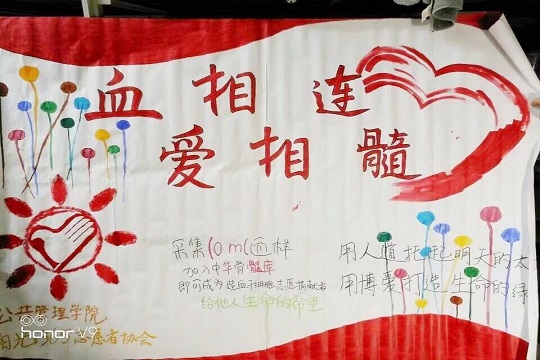 血相连
爱相髓
采集10ml血样
加入中华骨髓库
即可成为造血干细胞志愿捐献者
给他人生命的希望
用人道托起明天的太
用博爱打造生命的绿
公共管理学院
阳光 志愿者协会
honor V9